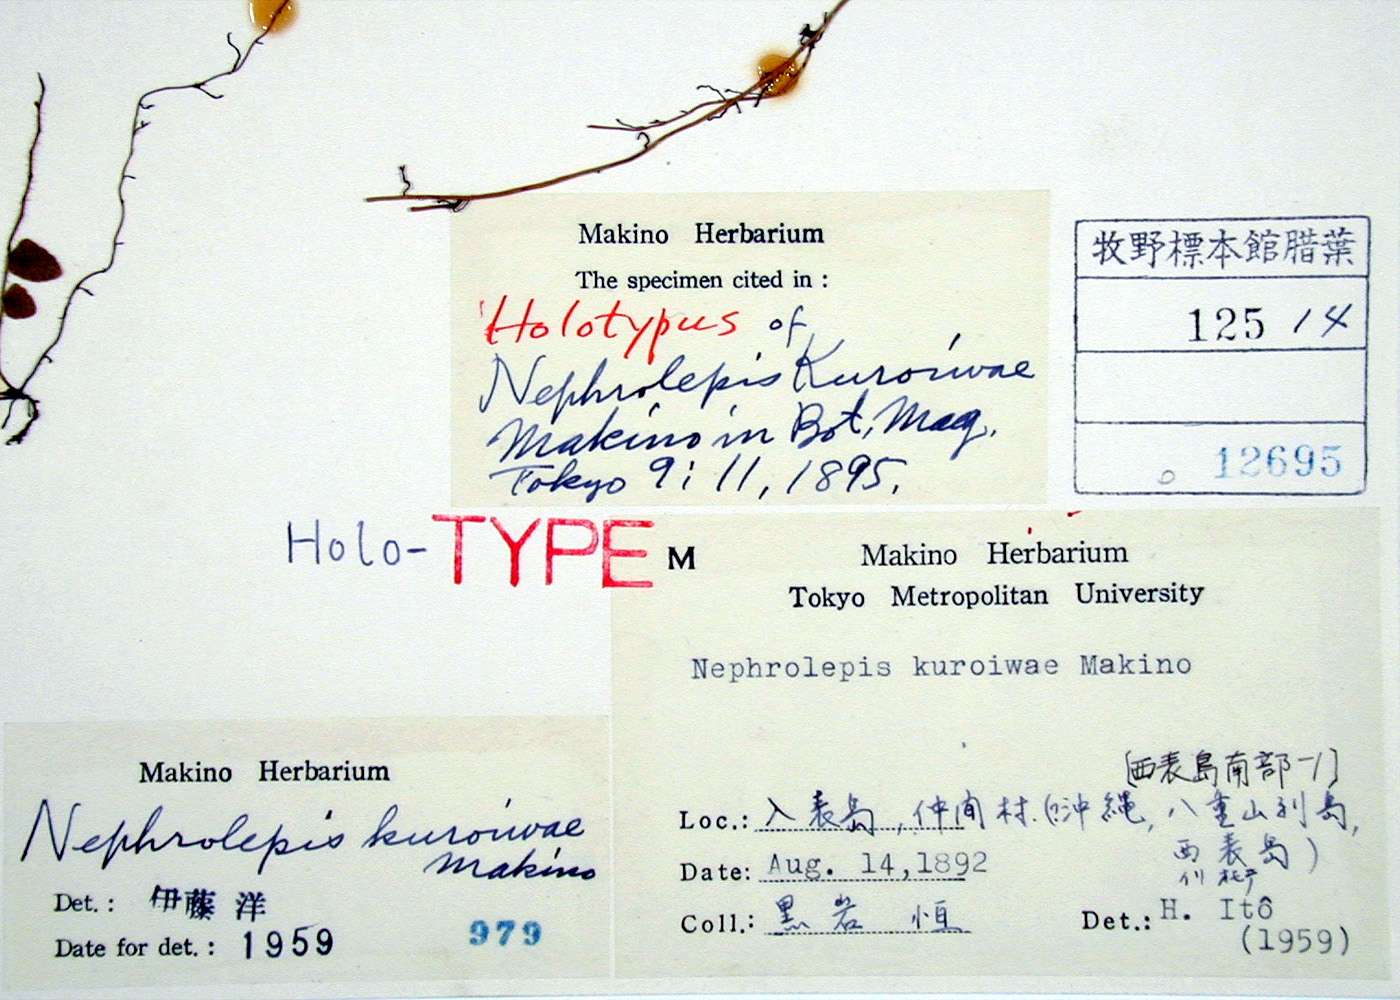 Makino Herbarium
The specimen cited in :
Holotypus of
Nephrolepis Kuroiwae
Makino in Bot. Mag.
Tokyo 9: 11, 1895.
牧野標本館腊葉
125 14
12695
Holo-TYPE M
Makino Herbarium
Tokyo Metropolitan University
Nephrolepis kuroiwae Makino
[西表島南部-1]
Loc.: 入表島, 仲間村. (沖縄, 八重山列島,
西表島)
Date: Aug. 14, 1892
Coll.: 黒岩 恒
Det.: H. Itô
(1959)
Makino Herbarium
Nephrolepis kuroiwae
Makino
Det.: 伊藤 洋
Date for det.: 1959
979